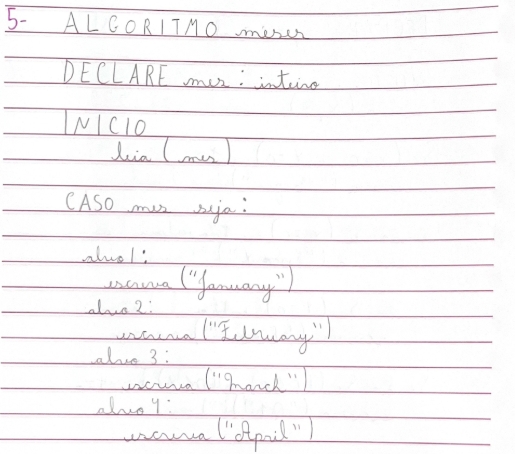 5- ALGORITMO meses
DECLARE mes : inteiro
INICIO
leia (mes)
CASO mes seja :
alvo 1 :
escreva ("January")
alvo 2 :
escreva ("February")
alvo 3 :
escreva ("March")
alvo 4 :
escreva ("April")